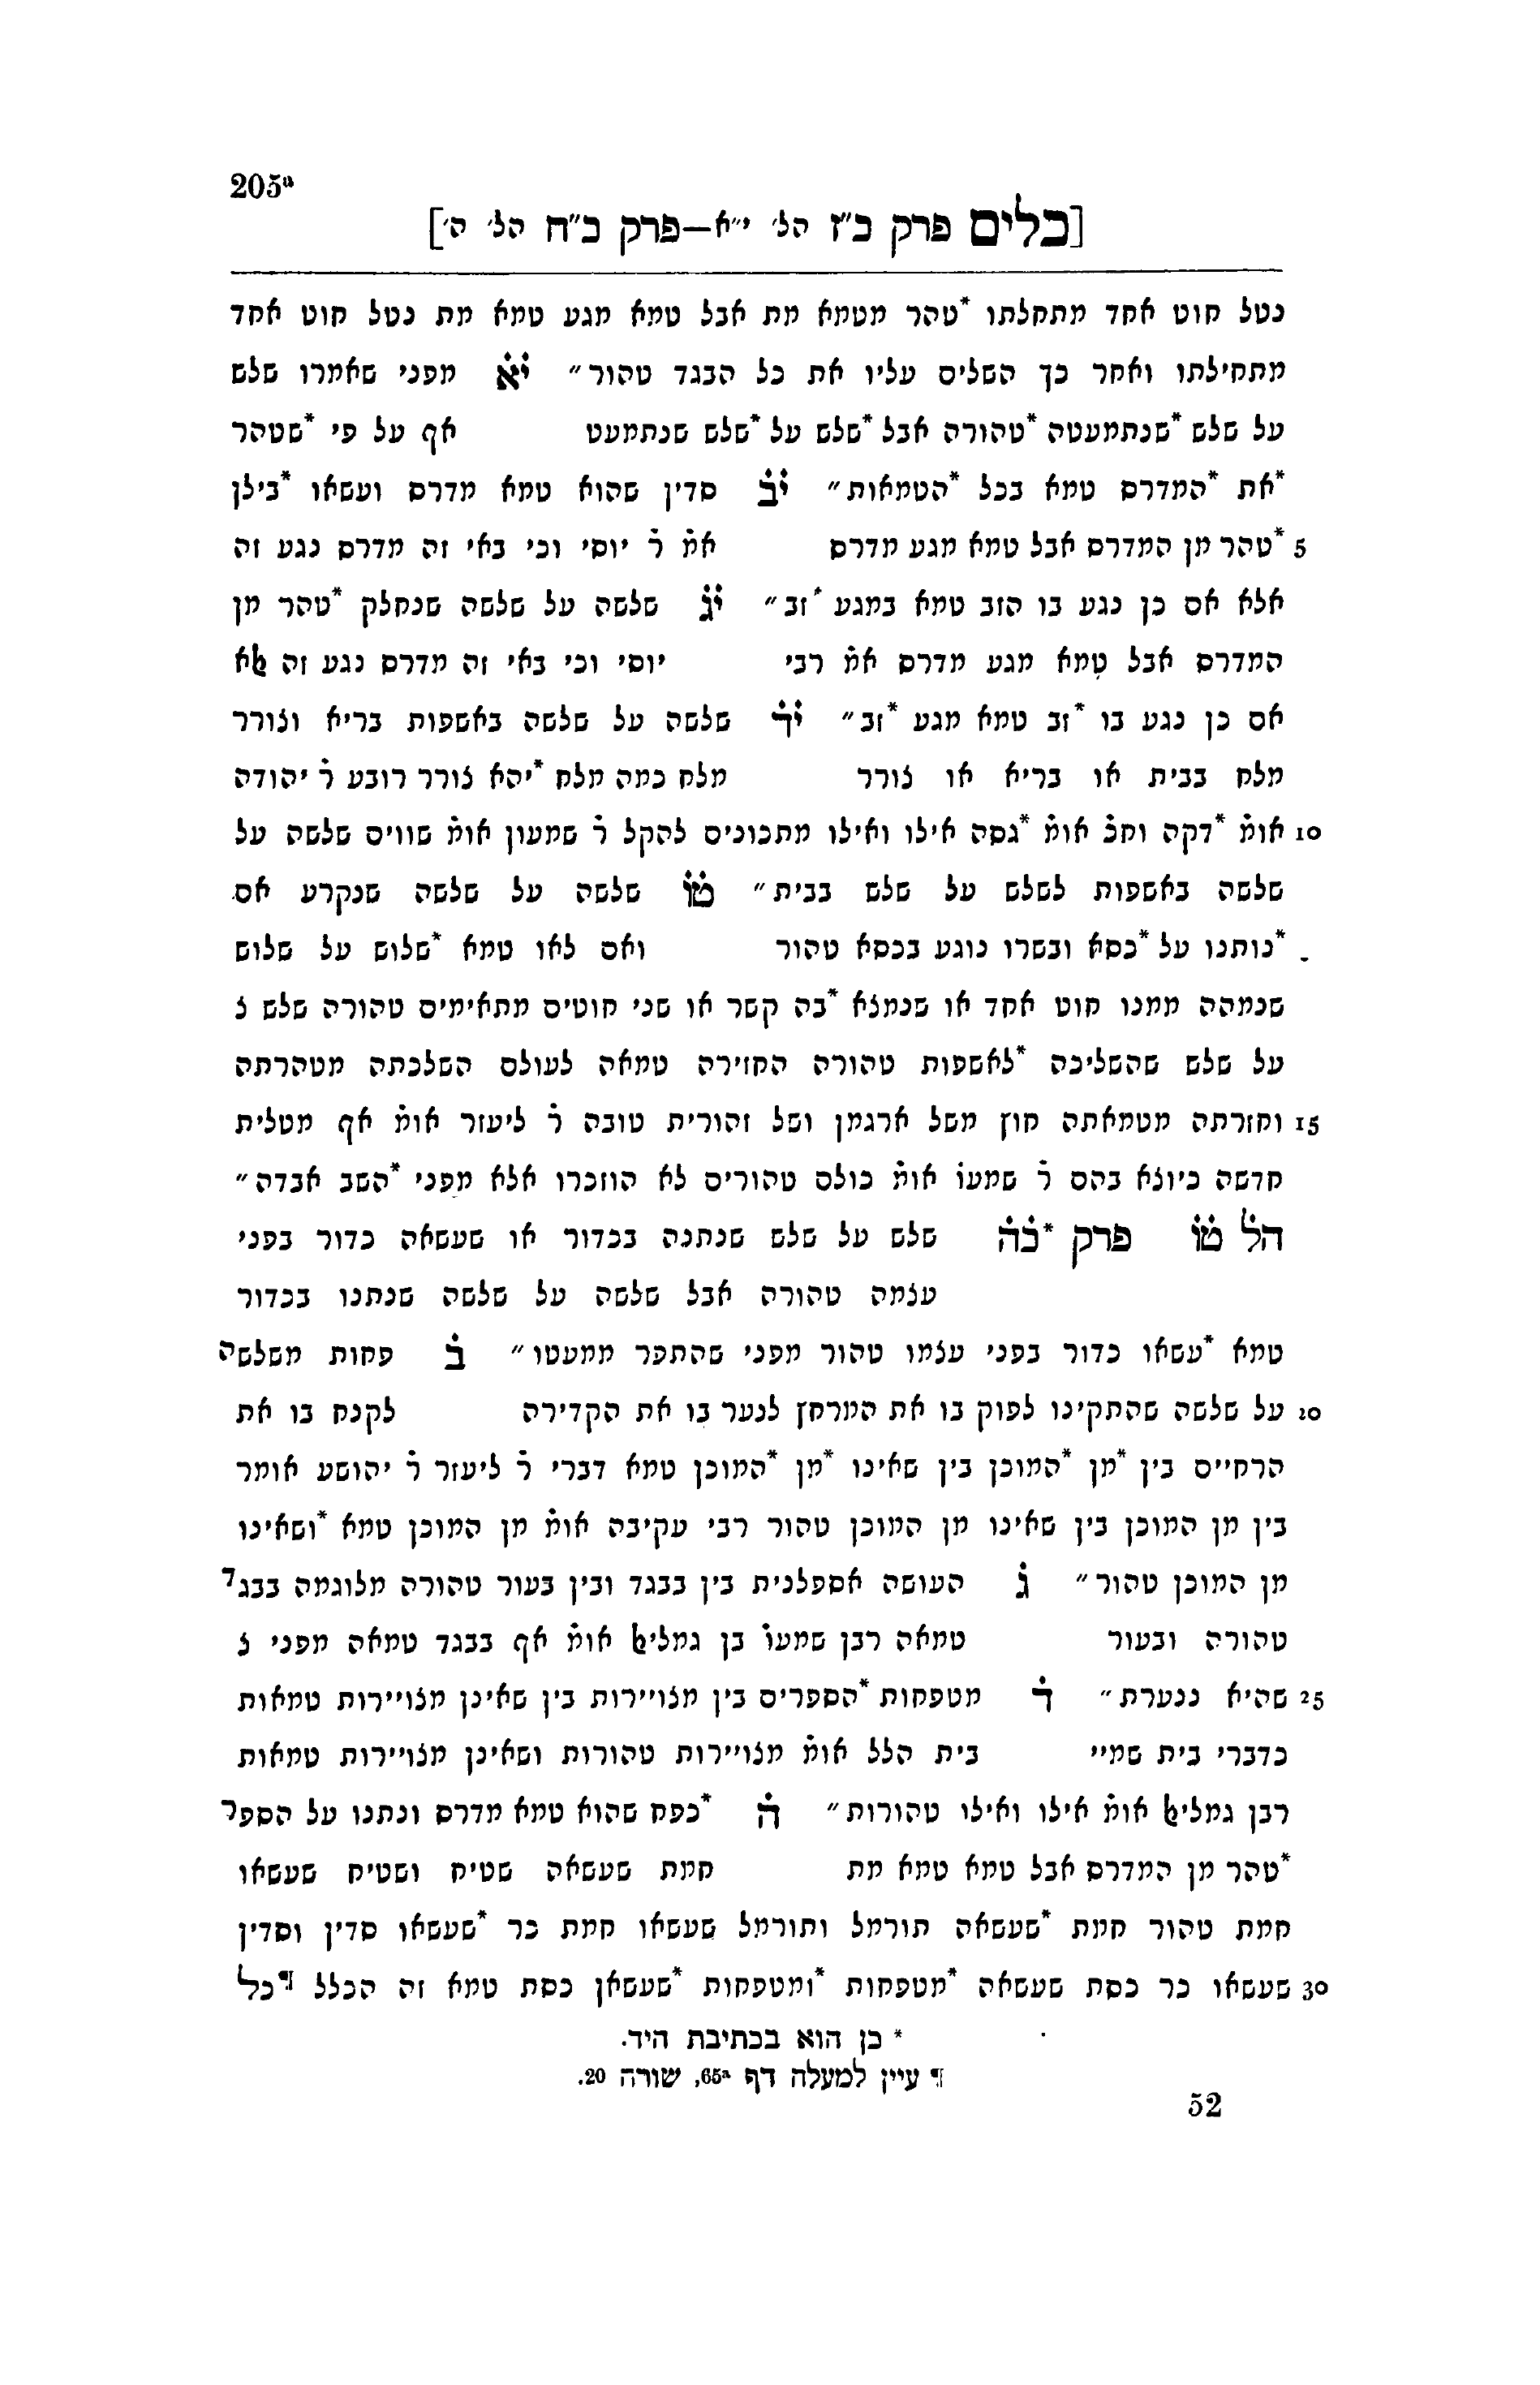 205a
[כלים פרק כ״ז הל׳ י״א—פרק כ״ח הל׳ ה׳]
נטל חוט אחד מתחלתו *טהר מטמא מת אבל טמא מגע טמא מת נטל חוט אחד
מתחילתו ואחר כך השלים עליו את כל הבגד טהור״ יׄאׄ מפני שאמרו שלש
על שלש *שנתמעטה *טהורה אבל *שלש על *שלש שנתמעט אף על פי *שטהר
*את *המדרס טמא בכל *הטמאות״ יׄבׄ סדין שהוא טמא מדרס ועשאו *בילן
5 *טהר מן המדרס אבל טמא מגע מדרס אמׄ רׄ יוסי וכי באי זה מדרס נגע זה
אלא אם כן נגע בו הזב טמא במגע *זב״ יׄגׄ שלשה על שלשה שנחלק *טהר מן
המדרס אבל טמא מגע מדרס אמׄ רבי יוסי וכי באי זה מדרס נגע זה אלא
אם כן נגע בו *זב טמא מגע *זב״ יׄדׄ שלשה על שלשה באשפות בריא וצורר
מלח בבית או בריא או צורר מלח כמה מלח *יהא צורר רובע רׄ יהודה
10 אומׄ *דקה וחכׄ אומׄ *גסה אילו ואילו מתכונים להקל רׄ שמעון אומׄ שווים שלשה על
שלשה באשפות לשלש על שלש בבית״ טׄוׄ שלשה על שלשה שנקרע אם
*נותנו על *כסא ובשרו נוגע בכסא טהור ואם לאו טמא *שלוש על שלוש
שנמהה ממנו חוט אחד או שנמצא *בה קשר או שני חוטים מתאימים טהורה שלש צ
על שלש שהשליכה *לאשפות טהורה החזירה טמאה לעולם השלכתה מטהרתה
15 וחזרתה מטמאתה חוץ משל ארגמן ושל זהורית טובה רׄ ליעזר אומׄ אף מטלית
חדשה כיוצא בהם רׄ שמעוׄ אומׄ כולם טהורים לא הוזכרו אלא מפני *השב אבדה״
הלׄ טׄוׄ פרק *כׄהׄ שלש על שלש שנתנה בכדור או שעשאה כדור בפני
עצמה טהורה אבל שלשה על שלשה שנתנו בכדור
טמא *עשאו כדור בפני עצמו טהור מפני שהתפר ממעטו״ בׄ פחות משלשה
20 על שלשה שהתקינו לפוק בו את המרחץ לנער בו את הקדירה לקנח בו את
הרחיים בין *מן *המוכן בין שאינו *מן *המוכן טמא דברי רׄ ליעזר רׄ יהושע אומר
בין מן המוכן בין שאינו מן המוכן טהור רבי עקיבה אומׄ מן המוכן טמא *ושאינו
מן המוכן טהור״ גׄ העושה אספלנית בין בבגד ובין בעור טהורה מלוגמה בבגד
טהורה ובעור טמאה רבן שמעוׄ בן גמליאל אומׄ אף בבגד טמאה מפני צ
25 שהיא ננערת״ דׄ מטפחות *הספרים בין מצויירות בין שאינן מצויירות טמאות
כדברי בית שמיי בית הלל אומׄ מצויירות טהורות ושאינן מצויירות טמאות
רבן גמליאל אומׄ אילו ואילו טהורות״ הׄ *כפח שהוא טמא מדרס ונתנו על הספר
*טהר מן המדרס אבל טמא טמא מת חמת שעשאה שטיח ושטיח שעשאו
חמת טהור חמת *שעשאה תורמל ותורמל שעשאו חמת כר *שעשאו סדין וסדין
30 שעשאו כר כסת שעשאה *מטפחות *ומטפחות *שעשאן כסת טמא זה הכלל ¶כל
* כן הוא בכתיבת היד.
¶ עיין למעלה דף 65a, שורה 20.
52